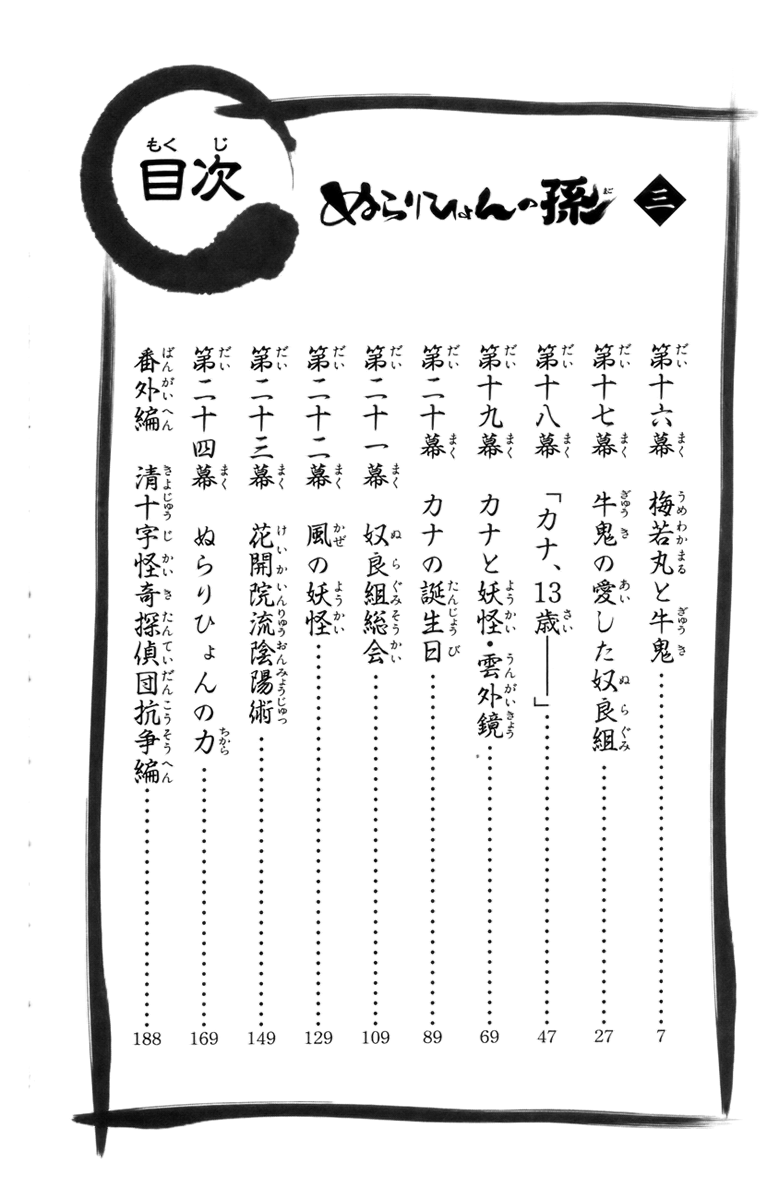 目次
ぬらりひょんの孫 三
第十六幕 梅若丸と牛鬼 7
第十七幕 牛鬼の愛した奴良組 27
第十八幕 「カナ、13歳――」 47
第十九幕 カナと妖怪・雲外鏡 69
第二十幕 カナの誕生日 89
第二十一幕 奴良組総会 109
第二十二幕 風の妖怪 129
第二十三幕 花開院流陰陽術 149
第二十四幕 ぬらりひょんの力 169
番外編 清十字怪奇探偵団抗争編 188